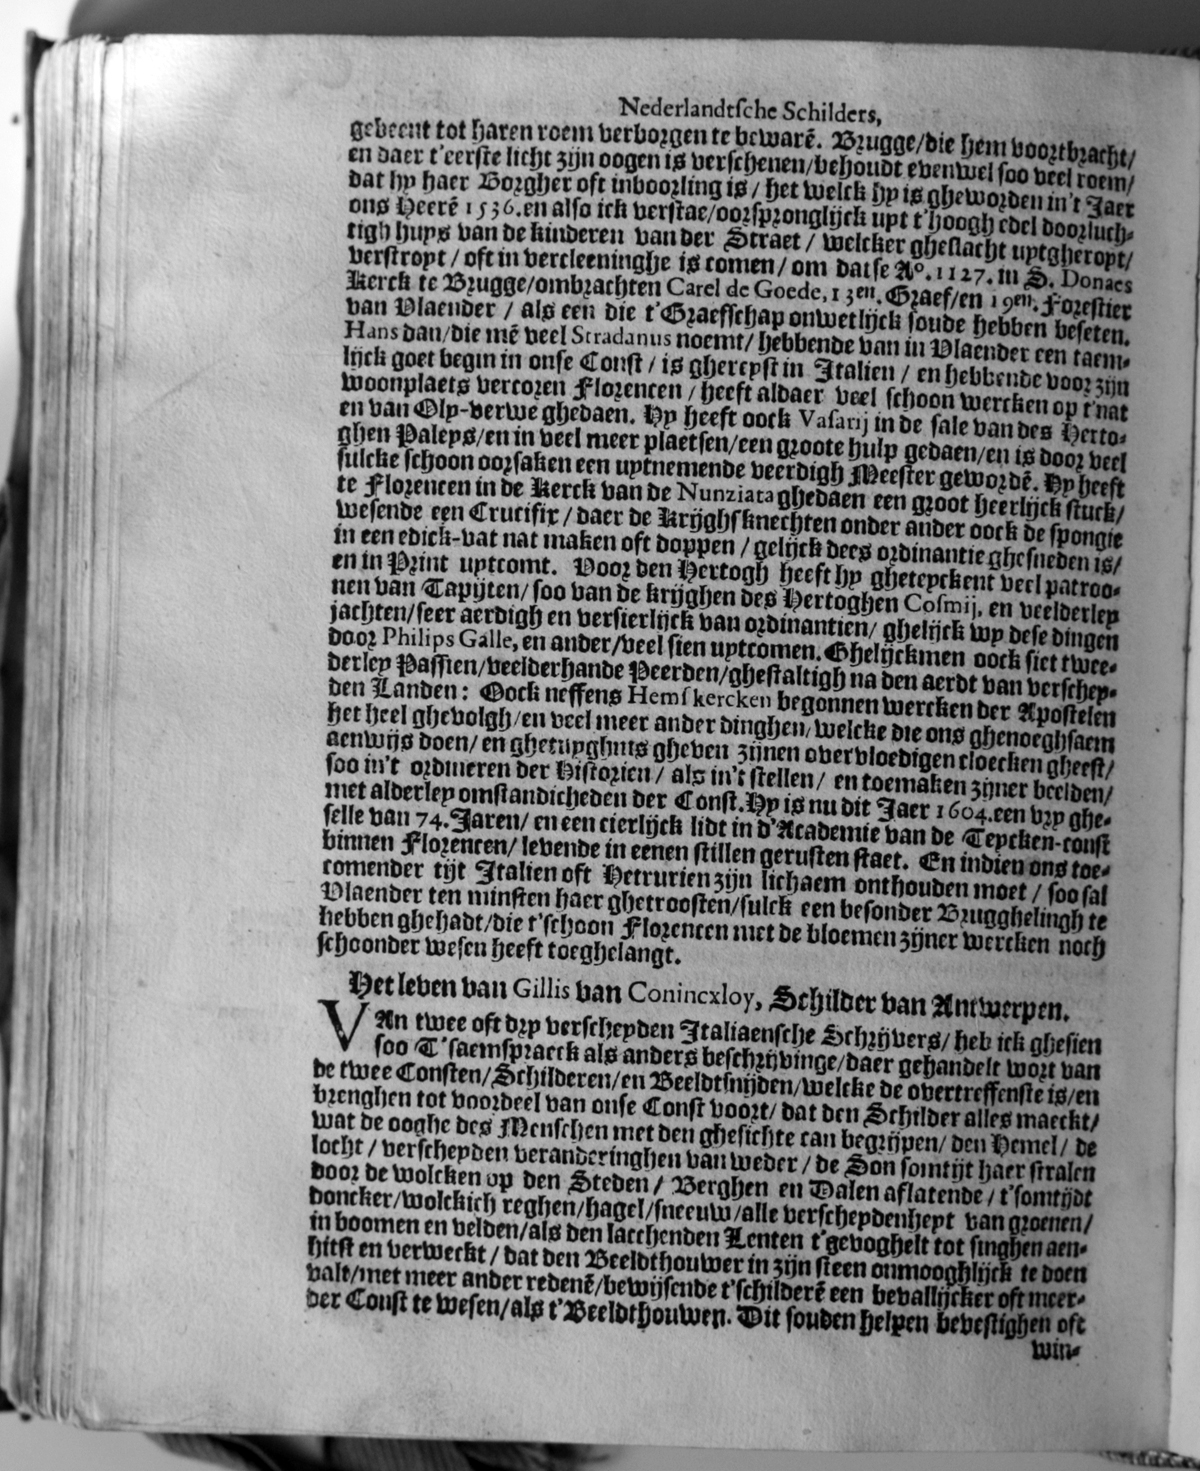 Nederlandtsche Schilders,
gebeent tot haren roem verborgen te bewarẽ. Brugge/die hem voortbracht/
en daer t'eerste licht zijn oogen is verschenen/behoudt evenwel soo veel roem/
dat hy haer Borgher oft inboorling is / het welck hy is gheworden in't Jaer
ons Heerẽ 1536.en also ick verstae/oorspronglijck uyt t'hoogh edel doorluch-
tigh huys van de kinderen van der Straet / welcker gheslacht uytgheropt/
verstroyt / oft in vercleeninghe is comen / om datse Aº. 1127. in S. Donaes
Kerck te Brugge/ombrachten Carel de Goede, 13en. Graef/en 19en. Forestier
van Vlaender / als een die t'Graefschap onwetlijck soude hebben beseten.
Hans dan/die mẽ veel Stradanus noemt/ hebbende van in Vlaender een taem-
lijck goet begin in onse Const / is ghereyst in Italien / en hebbende voor zijn
woonplaets vercoren Florencen / heeft aldaer veel schoon wercken op t'nat
en van Oly-verwe ghedaen. Hy heeft oock Vasarij in de sale van des Herto-
ghen Paleys/en in veel meer plaetsen/een groote hulp gedaen/en is door veel
sulcke schoon oorsaken een uytnemende veerdigh Meester gewordẽ. Hy heeft
te Florencen in de Kerck van de Nunziata ghedaen een groot heerlijck stuck/
wesende een Crucifix / daer de Krijghsknechten onder ander oock de spongie
in een edick-vat nat maken oft doppen / gelijck dees ordinantie ghesneden is/
en in Print uytcomt. Voor den Hertogh heeft hy gheteyckent veel patroo-
nen van Tapijten/ soo van de krijghen des Hertoghen Cosmij, en veelderley
jachten/seer aerdigh en versierlijck van ordinantien/ ghelijck wy dese dingen
door Philips Galle, en ander/veel sien uytcomen. Ghelijckmen oock siet twee-
derley Passien/veelderhande Peerden/ghestaltigh na den aerdt van verschey-
den Landen: Oock neffens Hemskercken begonnen wercken der Apostelen
het heel ghevolgh/en veel meer ander dinghen/welcke die ons ghenoeghsaem
aenwijs doen/ en ghetuyghnis gheven zijnen overvloedigen cloecken gheest/
soo in't ordineren der Historien / als in't stellen / en toemaken zijner beelden/
met alderley omstandicheden der Const. Hy is nu dit Jaer 1604.een vry ghe-
selle van 74.Jaren/ en een cierlijck lidt in d'Academie van de Teycken-const
binnen Florencen/ levende in eenen stillen gerusten staet. En indien ons toe-
comender tijt Italien oft Hetrurien zijn lichaem onthouden moet / soo sal
Vlaender ten minsten haer ghetroosten/sulck een besonder Brugghelingh te
hebben ghehadt/die t'schoon Florencen met de bloemen zijner wercken noch
schoonder wesen heeft toeghelangt.
Het leven van Gillis van Conincxloy, Schilder van Antwerpen.
VAn twee oft dry verscheyden Italiaensche Schrijvers/ heb ick ghesien
soo T'saemspraeck als anders beschrijvinge/daer gehandelt wort van
de twee Consten/Schilderen/en Beeldtsnijden/welcke de overtreffenste is/en
brenghen tot voordeel van onse Const voort/ dat den Schilder alles maeckt/
wat de ooghe des Menschen met den ghesichte can begrijpen/ den Hemel/ de
locht / verscheyden veranderinghen van weder / de Son somtijt haer stralen
door de wolcken op den Steden / Berghen en Dalen aflatende / t'somtijdt
doncker/wolckich reghen/hagel/sneeuw/alle verscheydenheyt van groenen/
in boomen en velden/als den lacchenden Lenten t'gevoghelt tot singhen aen-
hitst en verweckt / dat den Beeldthouwer in zijn steen onmooghlijck te doen
valt/met meer ander redenẽ/bewijsende t'schilderẽ een bevallijcker oft meer-
der Const te wesen/als t'Beeldthouwen. Dit souden helpen bevestighen oft
win-